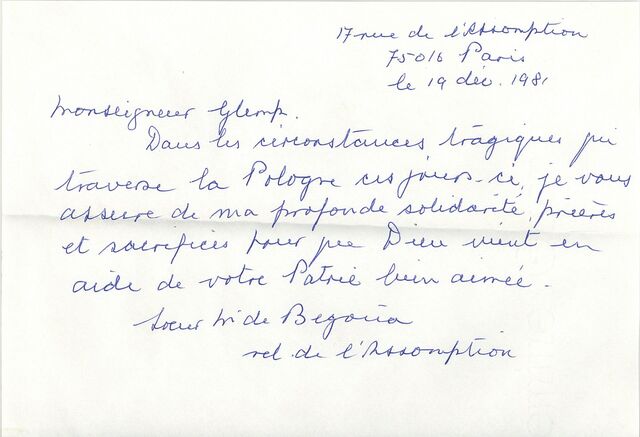 17 rue de l'Assomption
75016 Paris
le 19 déc. 1981
Monseigneur Glemp.
Dans les circonstances tragiques qui
traverse la Pologne ces jours-ci, je vous
assure de ma profonde solidarité, prières
et sacrifices pour que Dieu vient en
aide de votre Patrie bien aimée.
Soeur Mª de Begoña
rel. de l'Assomption